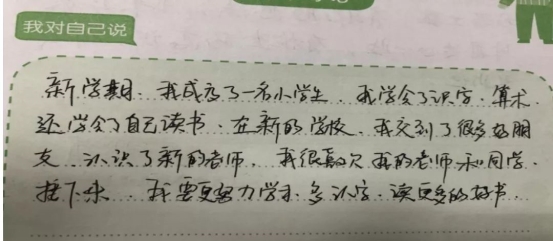 我对自己说
新学期.我成为了一名小学生.我学会了识字.算术.
还学会了自己读书.在新的学校.我交到了很多好朋
友.认识了新的老师.我很喜欢我的老师和同学.
接下来.我要更努力学习.多识字.读更多的好书.